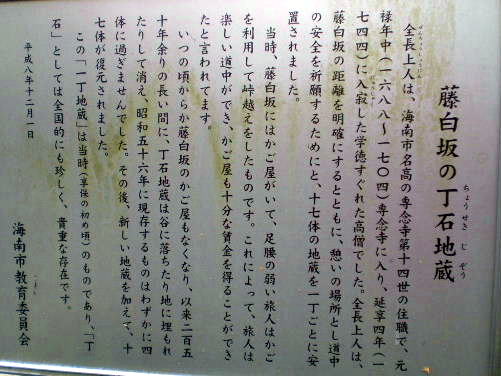 藤白坂の丁石地蔵
ちょうせきじぞう
全長上人は、海南市名高の専念寺第十四世の住職で、元
ぜんちょうしょうにん
禄年中(一六八八~一七〇四)専念寺に入り、延享四年(一
七四四)に入寂した学徳すぐれた高僧でした。全長上人は、
藤白坂の距離を明確にするとともに、憩いの場所とし道中
の安全を祈願するためにと、十七体の地蔵を一丁ごとに安
置されました。
当時、藤白坂にはかご屋がいて、足腰の弱い旅人はかご
を利用して峠越えをしたものです。これによって、旅人は
楽しい道中ができ、かご屋も十分な賃金を得ることができ
たと言われてます。
いつの頃からか藤白坂のかご屋もなくなり、以来二百五
十年余りの長い間に、丁石地蔵は谷に落ちたり地に埋もれ
たりして消え、昭和五十六年に現存するものはわずかに四
体に過ぎませんでした。その後、新しい地蔵を加えて、十
七体が復元されました。
この「一丁地蔵」は当時(享保の初め頃)のものであり、「丁
石」としては全国的にも珍しく、貴重な存在です。
平成八年十二月一日
海南市教育委員会